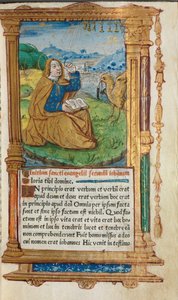 Initium sancti evangelii secundum iohannem
Gloria tibi domine.
IN principio erat verbum et verbum erat
apud deum et deus erat verbum hoc erat
in principio apud deum Omnia per ipsum facta
sunt et sine ipso factum est nichil. Quod factum
est in ipso vita erat et vita erat lux ho
minum et lux in tenebris lucet et tenebre eam
non comprehenderunt Fuit homo missus a deo
cui nomen erat iohannes Hic venit in testimo